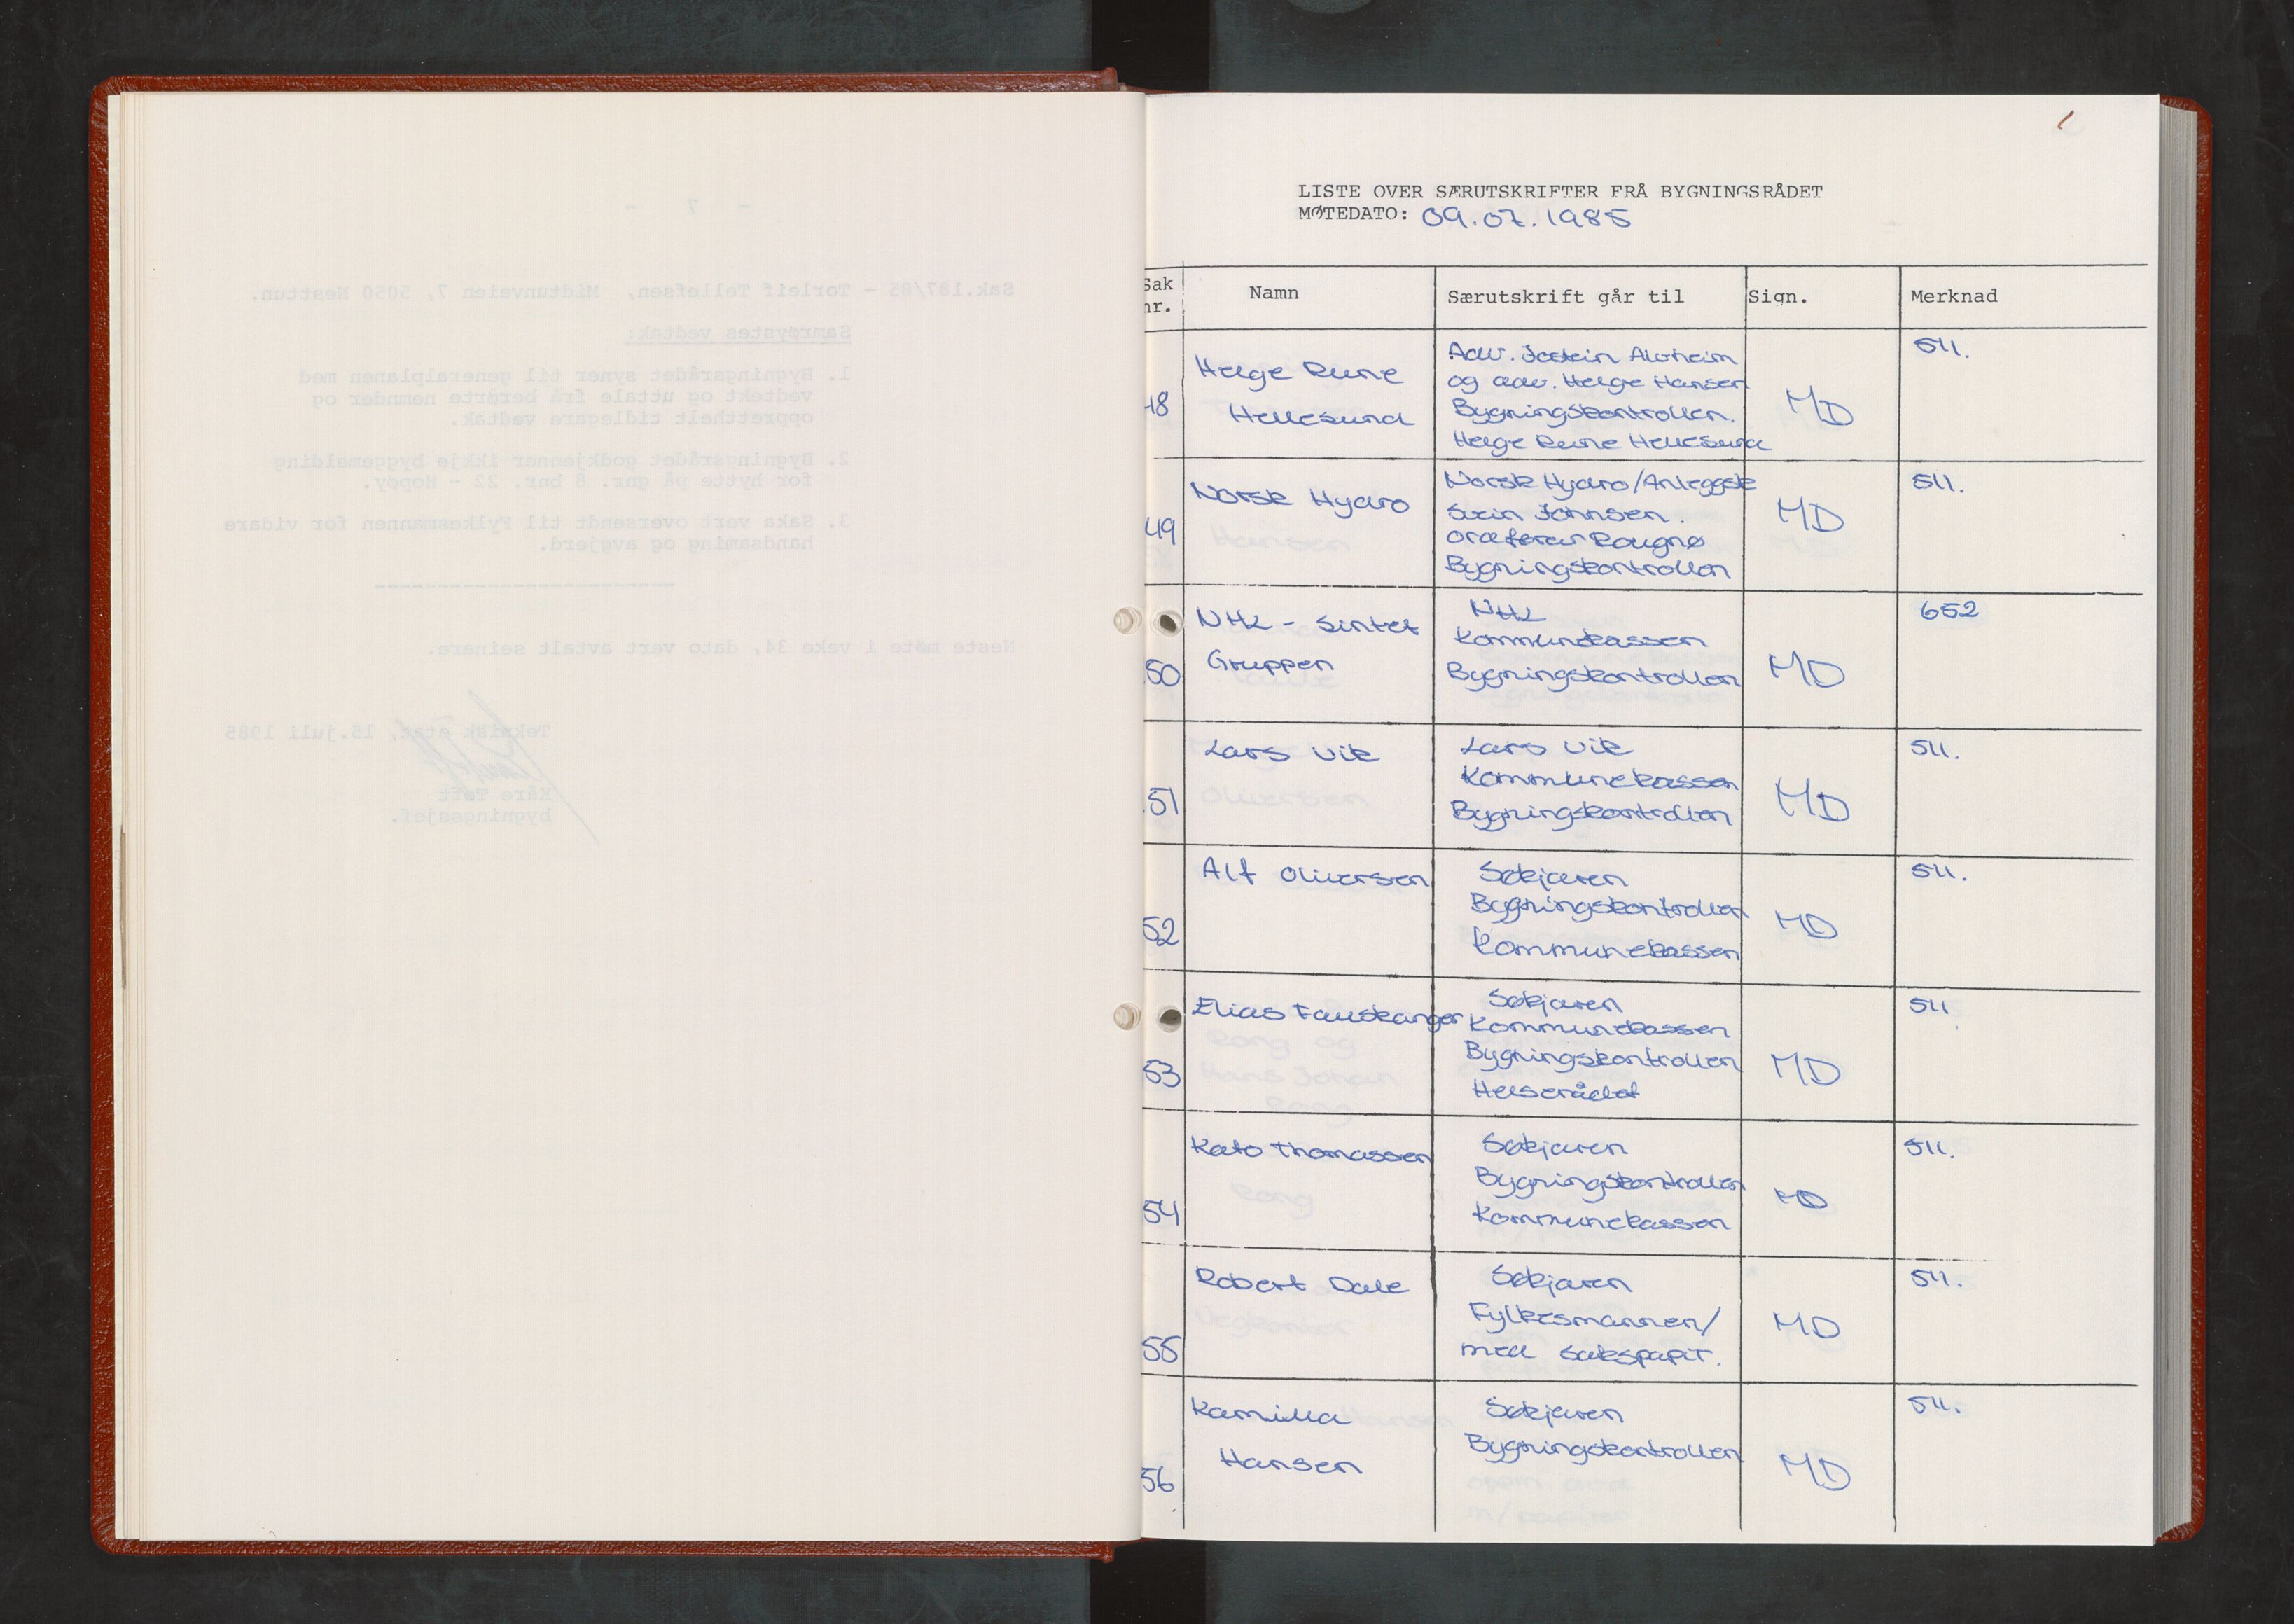 1
LISTE OVER SÆRUTSKRIFTER FRÅ BYGNINGSRÅDET
MØTEDATO: 09.07.1985
Sak nr.
Namn
Særutskrift går til
Sign.
Merknad
48
Helge Rune
Hellesund
Adv. Jostein Alvheim
og adv. Helge Hansen
Bygningskontrollen.
Helge Rune Hellesund
MD
511.
49
Norsk Hydro
Norsk Hydro/Anleggsk
Svein Johnsen.
Bygningskontrollen
MD
511.
50
NHL - Sintef
Gruppen
NHL
Kommunekassen
Bygningskontrollen
MD
652
51
Lars Vik
Lars Vik
Kommunekassen
Bygningskontrollen
MD
511.
52
Alf Oliversen
Søkjaren
Bygningskontrollen
Kommunekassen
MD
511.
53
Elias Fauskanger
Søkjaren
Kommunekassen
Bygningskontrollen
Helserådet
MD
511
54
Kato Thomassen
Søkjaren
Bygningskontrollen
Kommunekassen
MD
511.
55
Robert Dale
Søkjaren
Fylkesmannen/
med sakspapir.
MD
511.
56
Kamilla
Hansen
Søkjaren
Bygningskontrollen
MD
511.